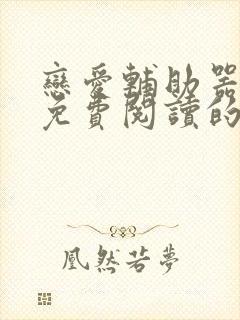 戀愛輔助器
免費閱讀的
凰然若夢